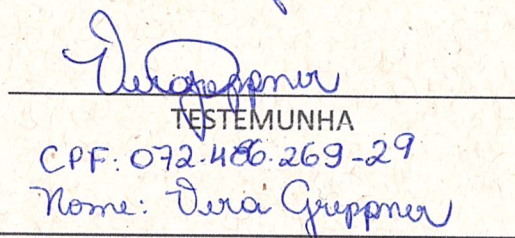 Vera Greppner
TESTEMUNHA
CPF: 072.486.269-29
Nome: Vera Greppner